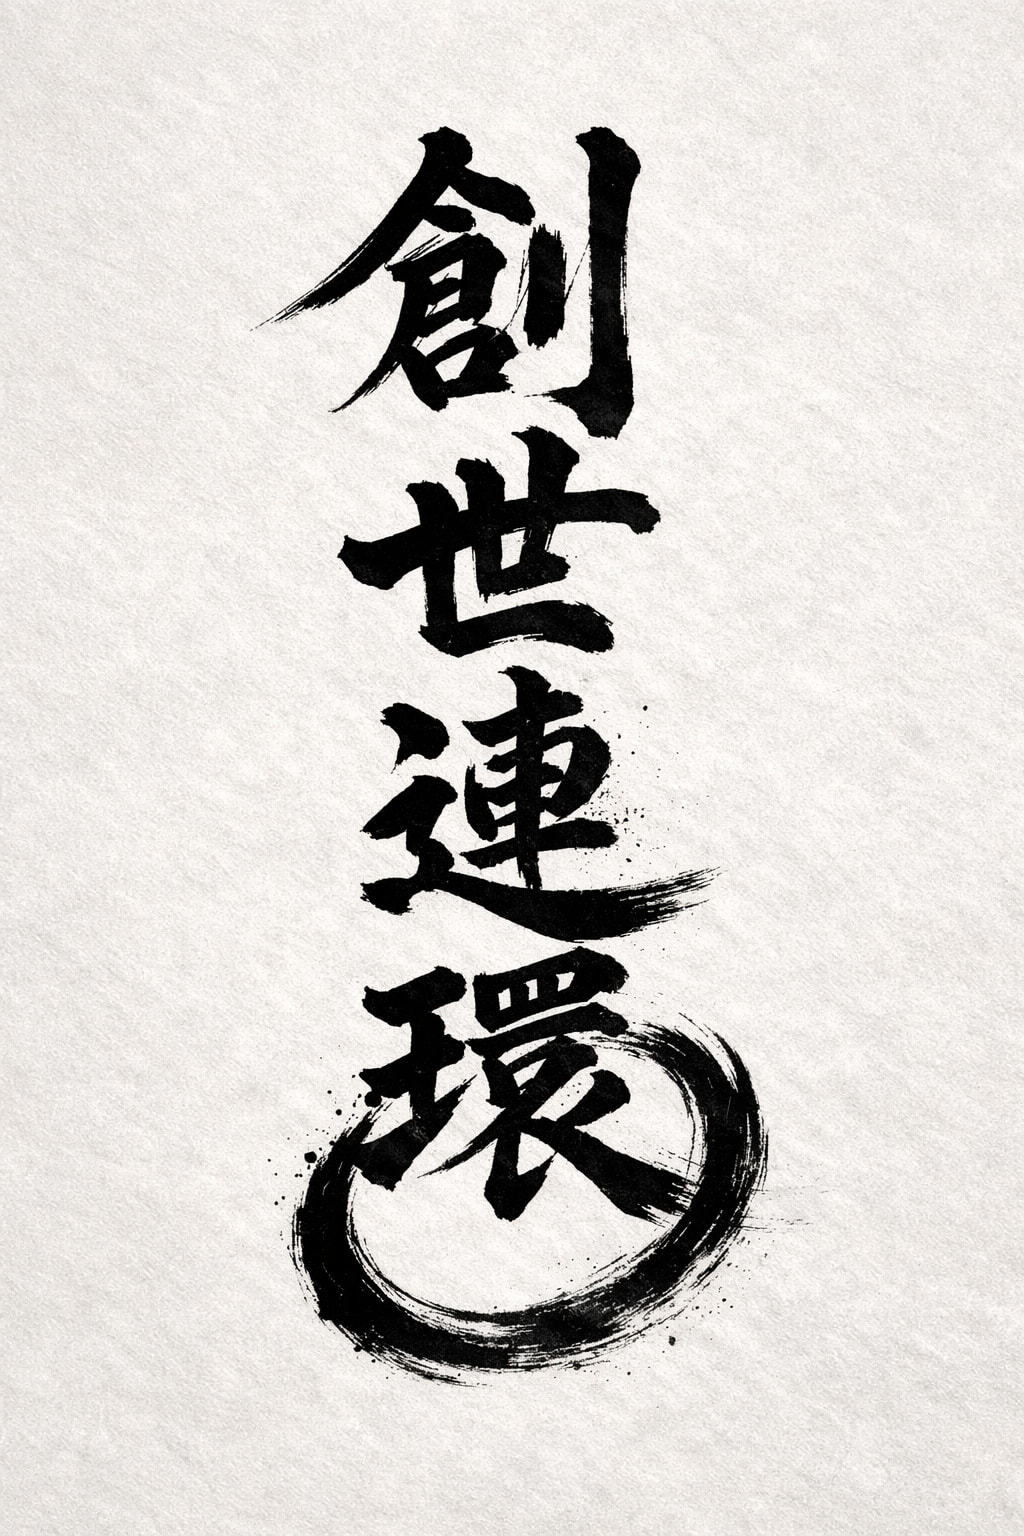 創世連環